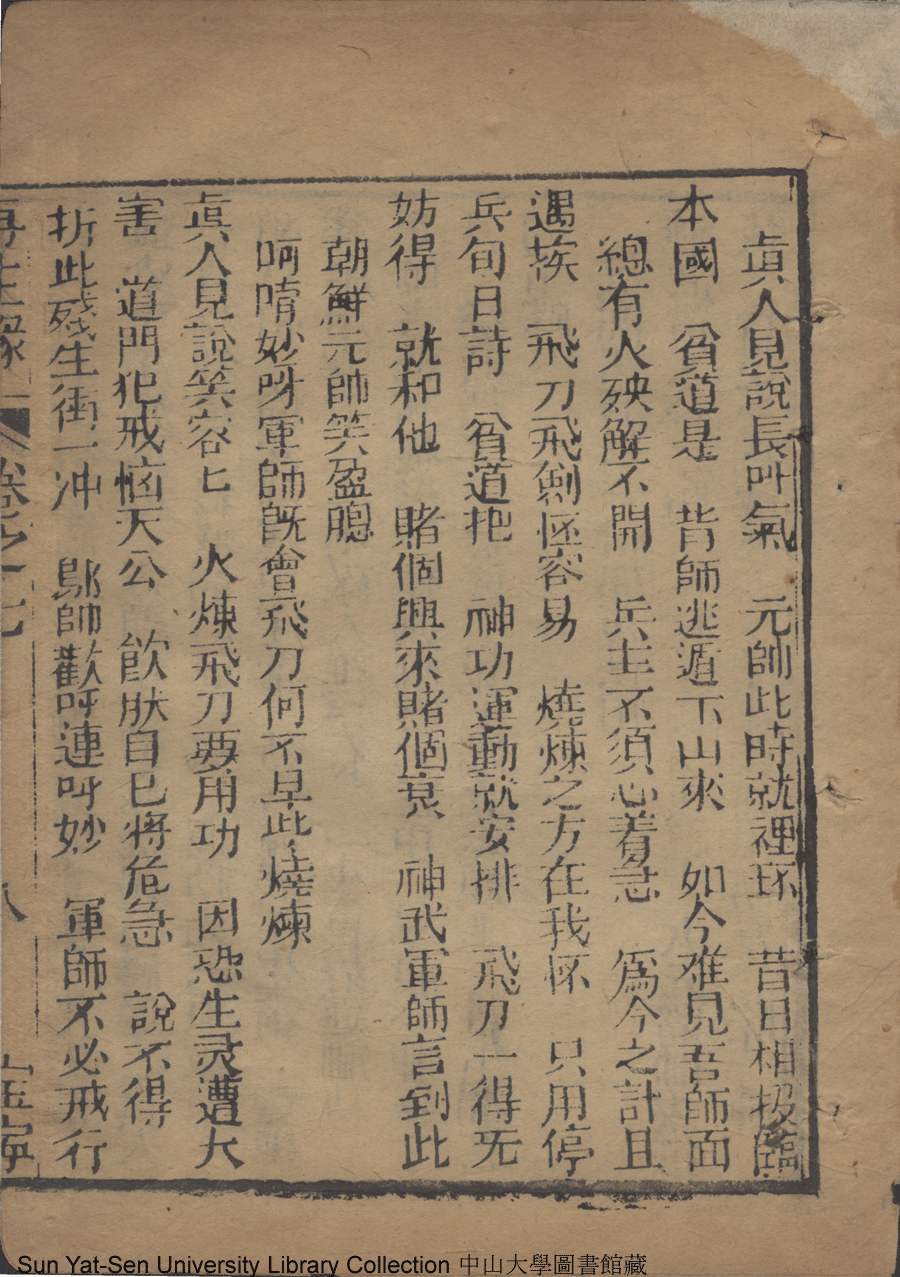 眞人見說長叫氣　元帥此時就裡㧍　昔日相扱臨
本國　貧道是　背師逃遁下山來　如今难見吾師面
總有火殃解不開　兵主不須心着急　爲今之計且
遇挨　飛刀飛劍怪容易　燒煉之方在我怀　只用停
兵旬日詩　貧道把　神功運動就安排　飛刀一得旡
妨得　就和他　賭個興來賭個衰　神武軍師言到此
朝鮮元帥笑盈腮
呵唷妙呀軍師旣會飛刀何不早此燒煉
眞人見說笑容匕　火煉飛刀要用功　因恐生灵遭大
害　道門犯戒惱天公　飲狀自已将危急　說不得
折此残生衝一冲　鄔帥歡呼連呼妙　軍師不必戒行
再生緣　卷之十七　八　寧
Sun Yat-Sen University Library Collection 中山大學圖書館藏